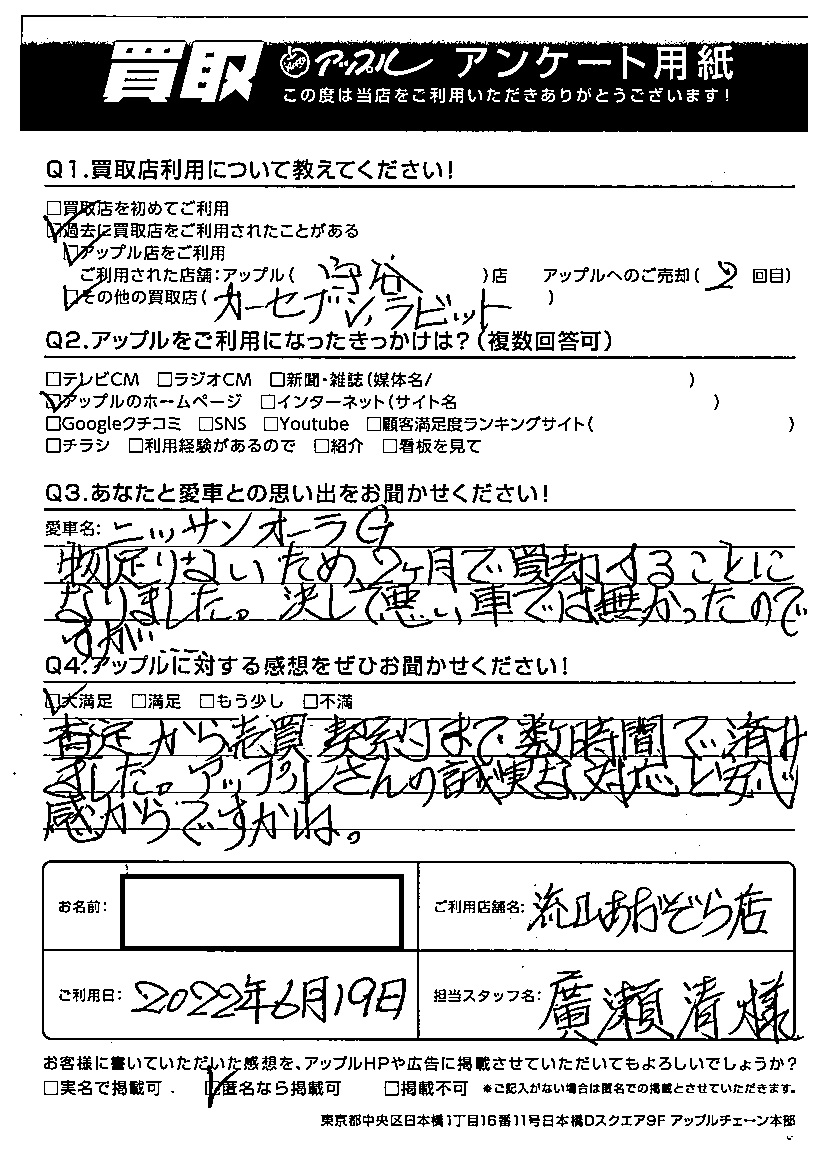 買取 アップル アンケート用紙
この度は当店をご利用いただきありがとうございます!
Q1.買取店利用について教えてください!
□買取店を初めてご利用
☑過去に買取店をご利用されたことがある
☑アップル店をご利用
ご利用された店舗:アップル( 守谷 )店 アップルへのご売却( 2 回目)
☑その他の買取店( カーセブン、ラビット )
Q2.アップルをご利用になったきっかけは?(複数回答可)
□テレビCM □ラジオCM □新聞・雑誌(媒体名/ )
☑アップルのホームページ □インターネット(サイト名 )
□Googleクチコミ □SNS □Youtube □顧客満足度ランキングサイト( )
□チラシ □利用経験があるので □紹介 □看板を見て
Q3.あなたと愛車との思い出をお聞かせください!
愛車名: ニッサンオーラG
物足りないため、2ヶ月で買却することに
なりました。決して悪い車では無かったので
すが…
Q4.アップルに対する感想をぜひお聞かせください!
☑大満足 □満足 □もう少し □不満
査定から売買契約まで数時間で済み
ました。アップルさんの誠実な対応と安心
感からですかね。
お名前:
ご利用店舗名: 流山おおぞら店
ご利用日: 2022年6月19日
担当スタッフ名: 廣瀬清様
お客様に書いていただいた感想を、アップルHPや広告に掲載させていただいてもよろしいでしょうか?
□実名で掲載可 ☑匿名なら掲載可 □掲載不可 ※ご記入がない場合は匿名での掲載とさせていただきます。
東京都中央区日本橋1丁目16番11号日本橋Dスクエア9F アップルチェーン本部